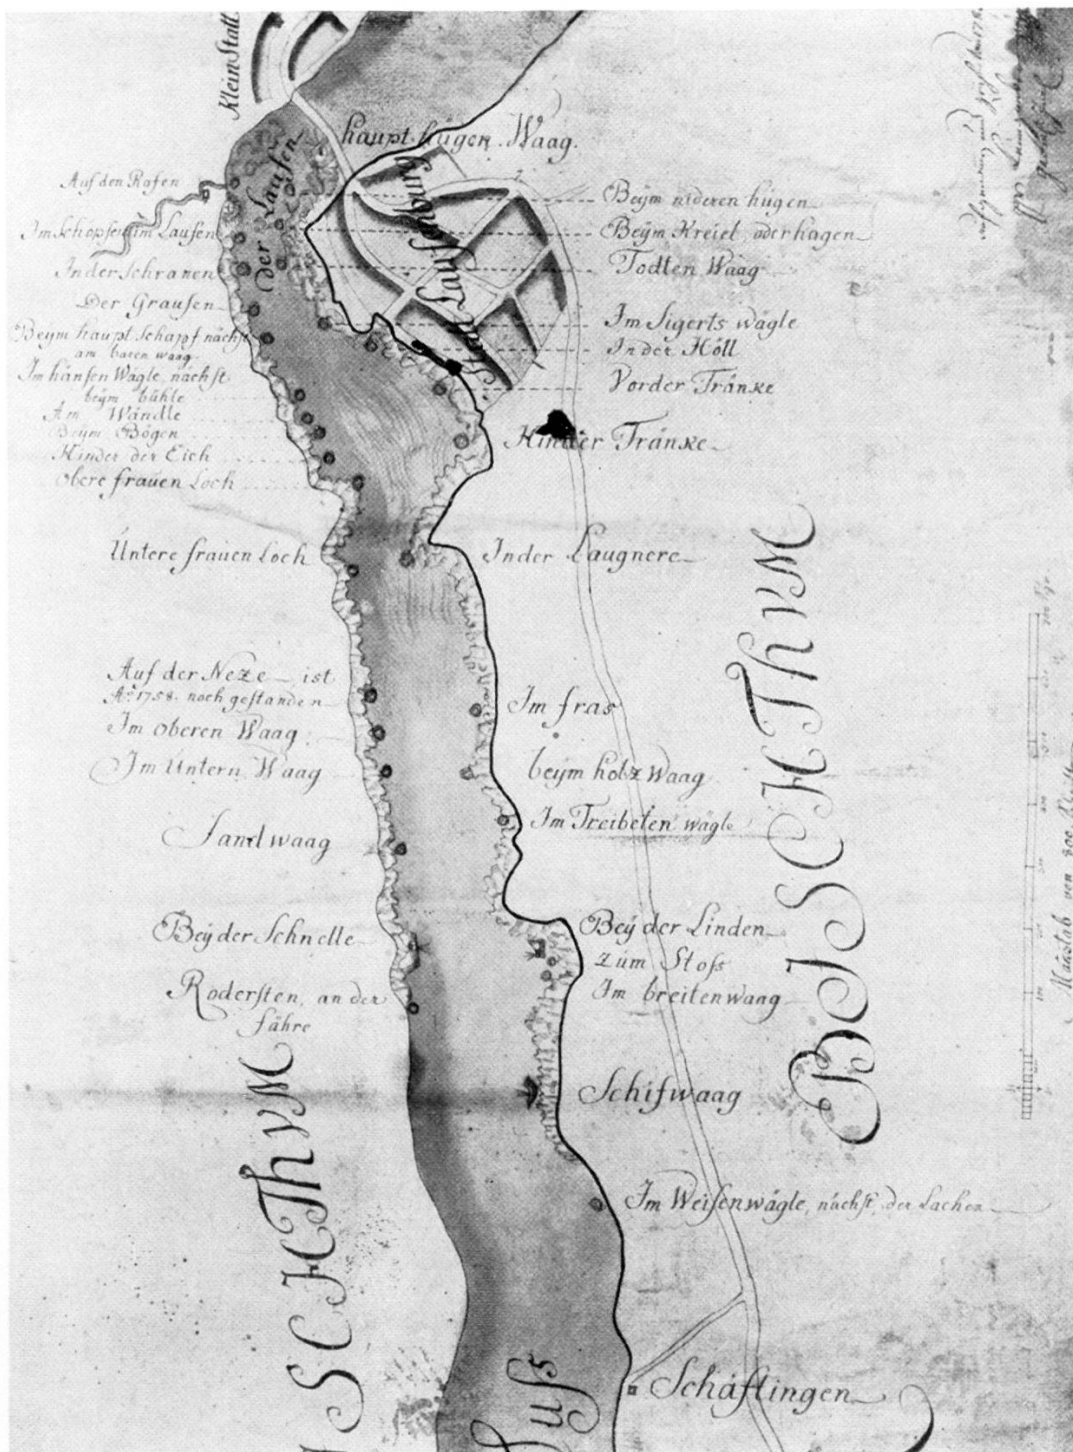 Klein Statt
haupt hügen Waag.
der Laufen
Statt Lauffenburg
Auf den Rosen
Im Schöpfen im Laufen
In der Schranen
Der Graufen
Beÿm haupt Schapf nächst
am baren waag.
Im hänsen Wägle, nächst
beÿm bühle
Am Wändle
Beÿm Bögen
Hinder der Eich
Obere frauen Loch
Untere frauen Loch
Auf der Neze ist
Aº. 1758. noch gestanden
Im Oberen Waag
Im Untern Waag
Sandwaag
Beÿ der Schnelle
Rodersten, an der
fähre
Beÿm nideren hügen
Beÿm Kreiel, oder hagen
Todten Waag
Im Sigerts wägle
In der Höll
Vorder Tränke
Hinder Tränke
In der Laugnere
Im fras
beÿm holz Waag
Im Treibeten wägle
Beÿ der Linden
zum Stoss
Im breitenwaag
Schifwaag
Im Weisenwägle, nächst, der Lachen
Schäflingen
BISCHThVM
ISCHThVM
fluss
Maustab von 800